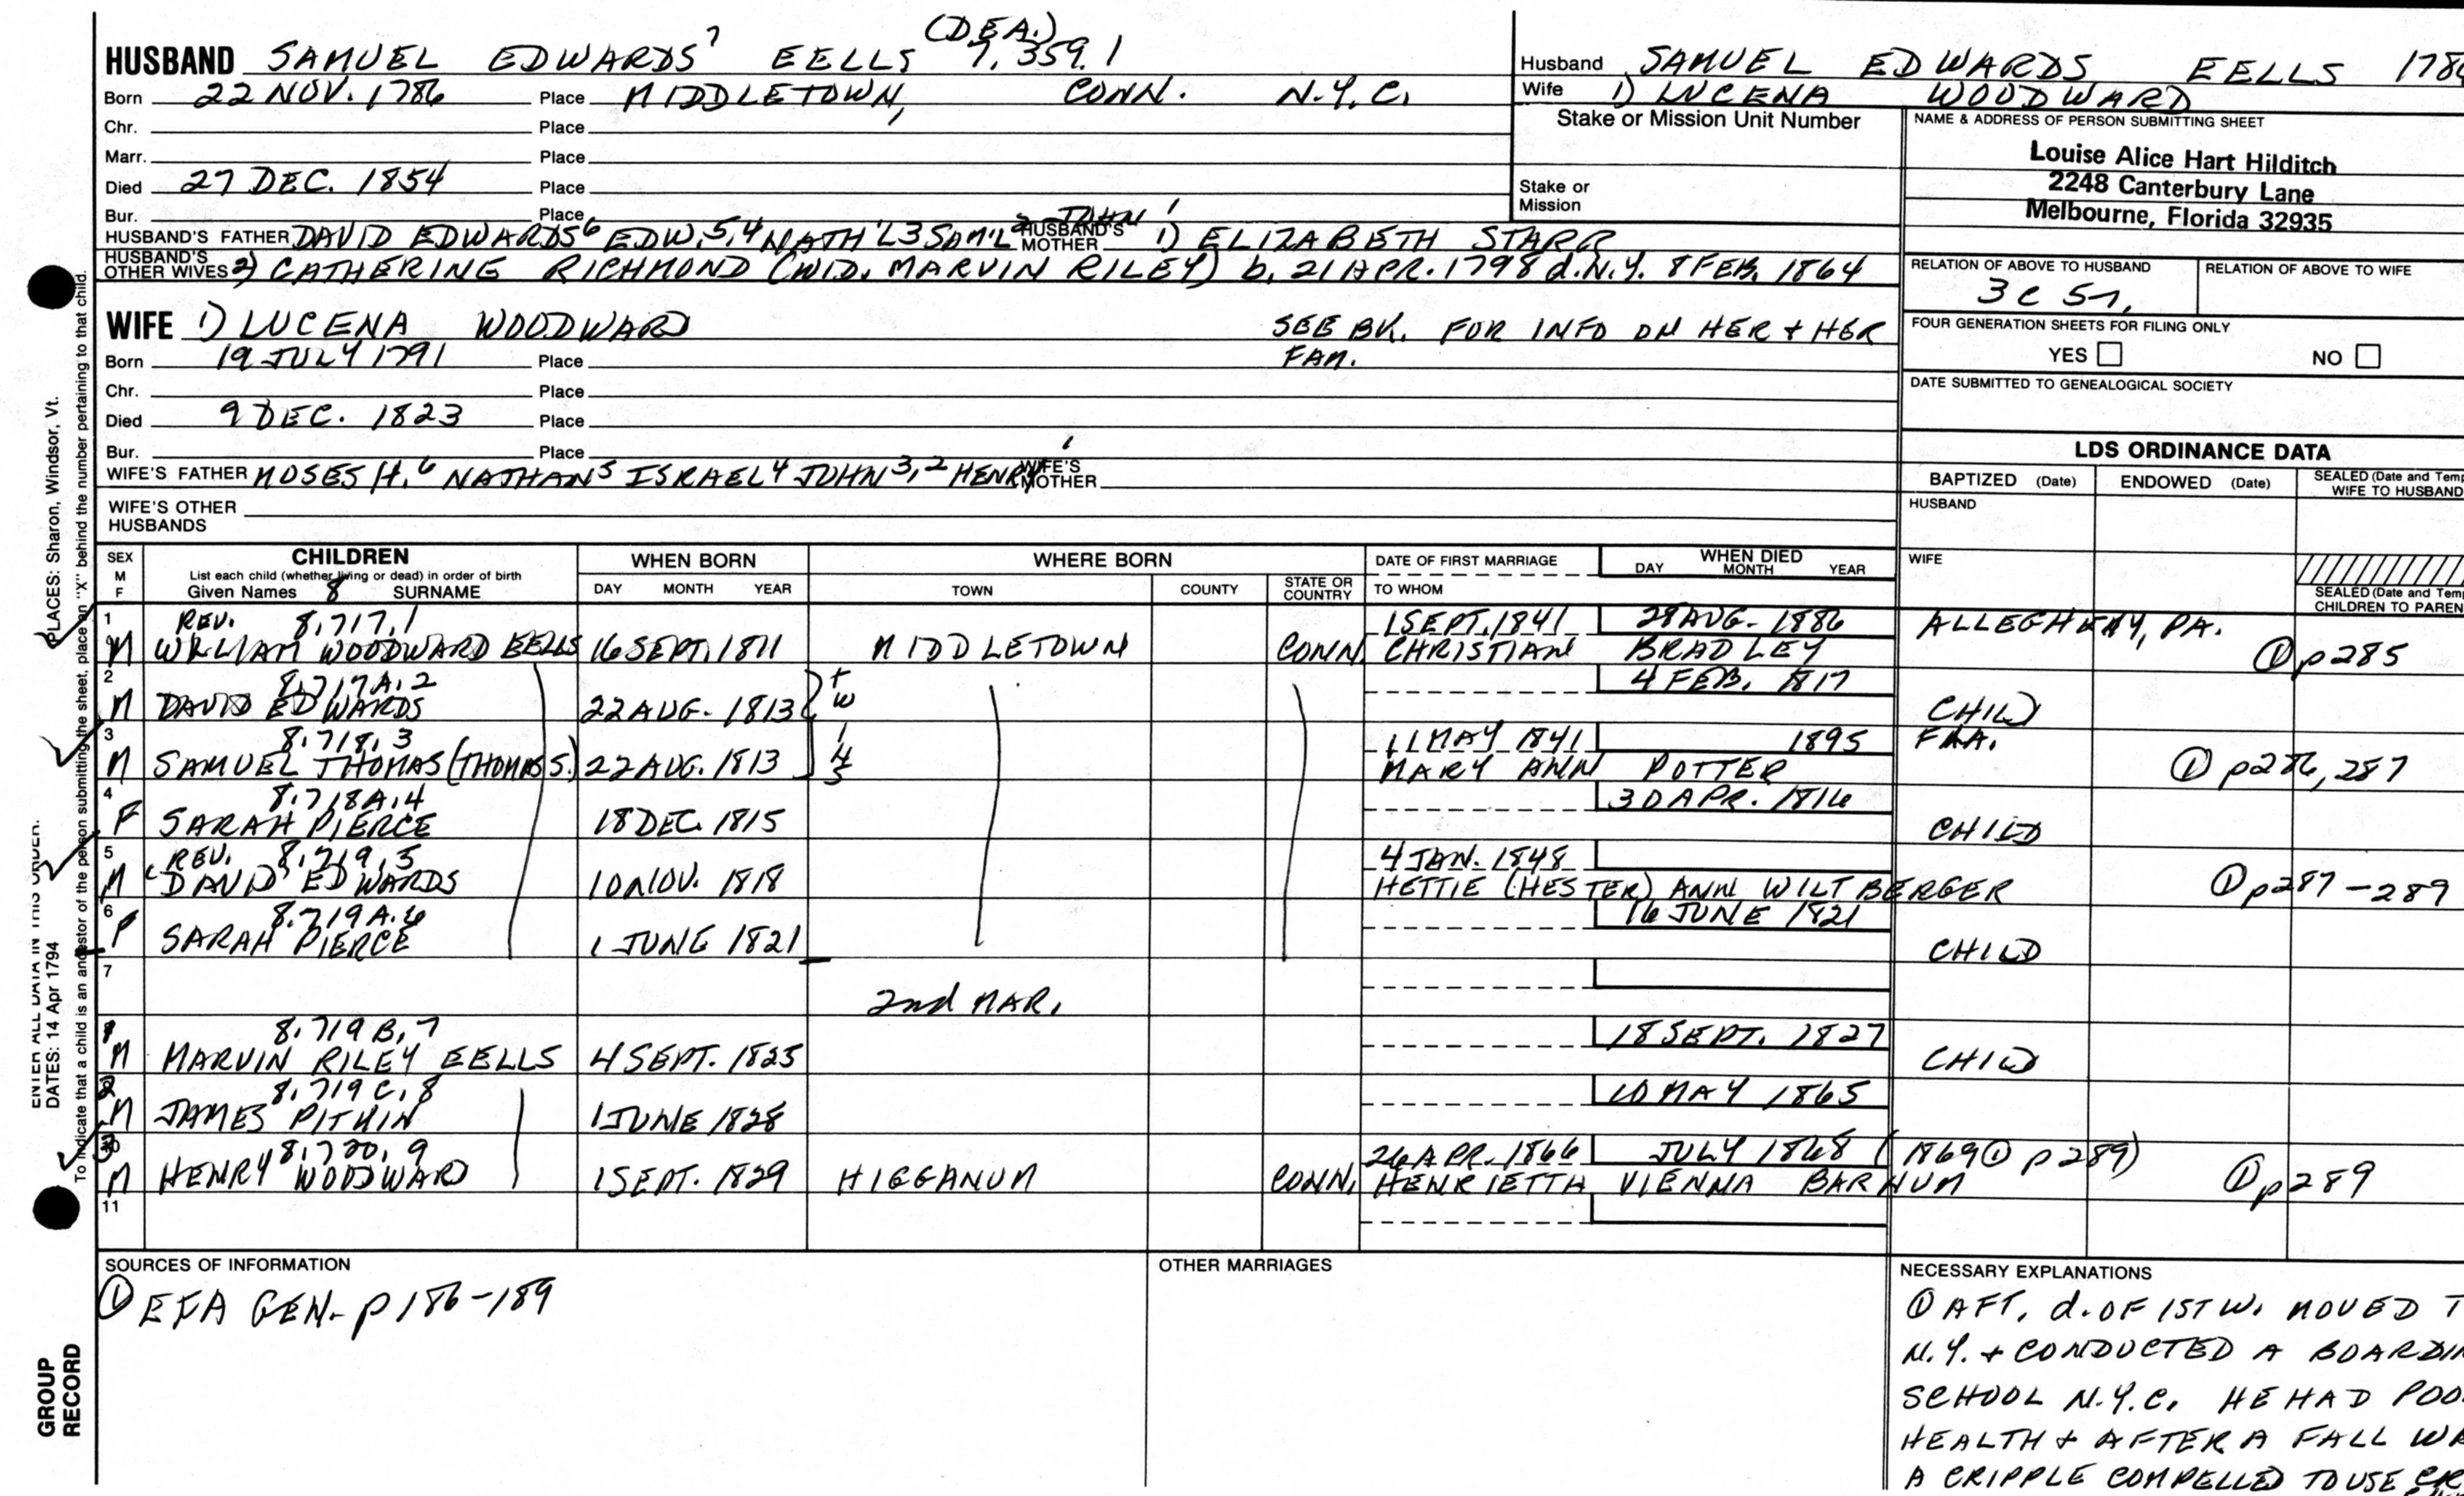 (DEA.)
HUSBAND SAMUEL EDWARDS7 EELLS 7.359.1
Born 22 NOV. 1786 Place MIDDLETOWN, CONN. N.Y.C.
Chr. Place
Marr. Place
Died 27 DEC. 1854 Place
Bur. Place
HUSBAND'S FATHER DAVID EDWARDS6 EDW.5,4 NATH'L3 SAM'L2 JOHN1 HUSBAND'S MOTHER 1) ELIZABETH STARR
HUSBAND'S OTHER WIVES 2) CATHERINE RICHMOND (WID. MARVIN RILEY) b. 21 APR. 1798 d. N.Y. 8 FEB. 1864
WIFE 1) LUCENA WOODWARD SEE BK. FOR INFO ON HER + HER
FAM.
Born 19 JULY 1791 Place
Chr. Place
Died 9 DEC. 1823 Place
Bur. Place
WIFE'S FATHER MOSES H.6 NATHAN5 ISRAEL4 JOHN3,2 HENRY1 WIFE'S MOTHER
WIFE'S OTHER
HUSBANDS
Husband SAMUEL EDWARDS EELLS
Wife 1) LUCENA WOODWARD
Stake or Mission Unit Number
Stake or
Mission
NAME & ADDRESS OF PERSON SUBMITTING SHEET
Louise Alice Hart Hilditch
2248 Canterbury Lane
Melbourne, Florida 32935
RELATION OF ABOVE TO HUSBAND RELATION OF ABOVE TO WIFE
3 C 5r.
FOUR GENERATION SHEETS FOR FILING ONLY
YES NO
DATE SUBMITTED TO GENEALOGICAL SOCIETY
LDS ORDINANCE DATA
BAPTIZED (Date) ENDOWED (Date) SEALED (Date and Temp
WIFE TO HUSBAND
HUSBAND
WIFE
SEALED (Date and Temp
CHILDREN TO PAREN
SEX
M
F
CHILDREN
List each child (whether living or dead) in order of birth
Given Names 8 SURNAME
WHEN BORN
DAY MONTH YEAR
WHERE BORN
TOWN COUNTY STATE OR COUNTRY
DATE OF FIRST MARRIAGE
TO WHOM
WHEN DIED
DAY MONTH YEAR
1 REV. 8.717.1 1 SEPT. 1841 28 AUG. 1886 ALLEGHENY, PA.
M WILLIAM WOODWARD EELLS 16 SEPT. 1811 MIDDLETOWN CONN. CHRISTIAN BRADLEY ① p285
2 8.717A.2 4 FEB. 1817
M DAVID EDWARDS 22 AUG. 1813 TWINS CHILD
3 8.718.3 11 MAY 1841 1895
M SAMUEL THOMAS (THOMAS S.) 22 AUG. 1813 MARY ANN POTTER ① p286,287
4 8.718A.4 30 APR. 1816
F SARAH PIERCE 18 DEC. 1815 CHILD
5 REV. 8.719.5 4 JAN. 1848
M "DAVID" EDWARDS 10 NOV. 1818 HETTIE (HESTER) ANN WILTBERGER ① p287-289
6 8.719A.6 16 JUNE 1821
F SARAH PIERCE 1 JUNE 1821 CHILD
7
2nd MAR.
1 8.719B.7 18 SEPT. 1827
M MARVIN RILEY EELLS 4 SEPT. 1825 CHILD
2 8.719C.8 10 MAY 1865
M JAMES PITKIN 1 JUNE 1828
3 8.720.9 26 APR. 1866 JULY 1868 (1869 ① p289)
M HENRY WOODWARD 1 SEPT. 1829 HIGGANUM CONN. HENRIETTA VIENNA BARNUM ① p289
11
SOURCES OF INFORMATION
① EFA GEN. p186-189
OTHER MARRIAGES
NECESSARY EXPLANATIONS
① AFT. d. OF 1ST W. MOVED T
N.Y. + CONDUCTED A BOARDIN
SCHOOL N.Y.C. HE HAD POO
HEALTH + AFTER A FALL WA
A CRIPPLE COMPELLED TO USE
PLACES: Sharon, Windsor, Vt.
To indicate that a child is an ancestor of the person submitting the sheet, place an "X" behind the number pertaining to that child.
ENTER ALL DATA IN THIS ORDER:
DATES: 14 Apr 1794
GROUP
RECORD